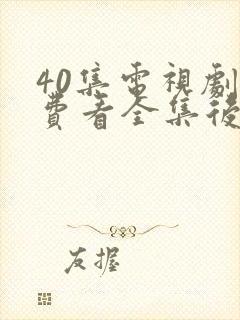 40集電視劇
費看全集後
友握